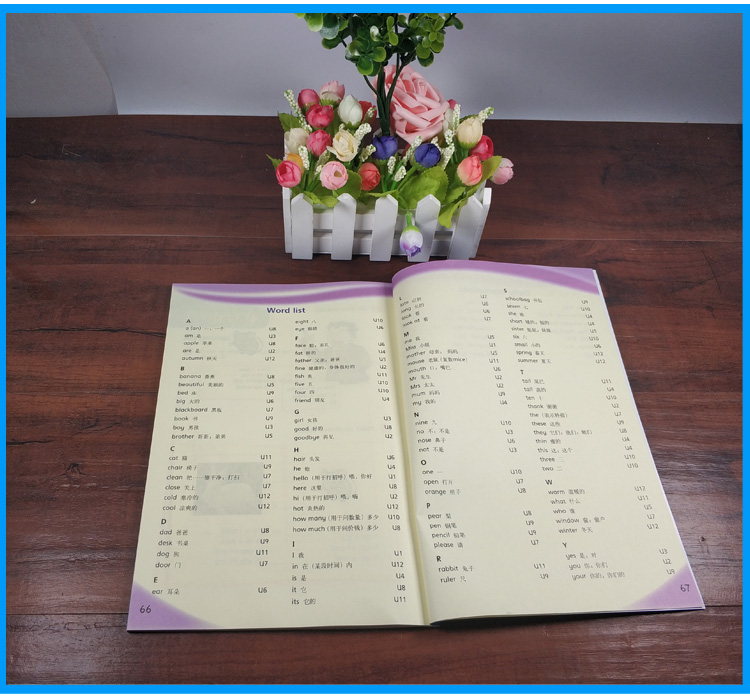 Word list
A
a (an) 一；一个 U8
am 是 U3
apple 苹果 U8
are 是 U2
autumn 秋天 U12
B
banana 香蕉 U8
beautiful 美丽的 U5
bed 床 U9
big 大的 U6
blackboard 黑板 U7
book 书 U9
boy 男孩 U3
brother 哥哥；弟弟 U5
C
cat 猫 U11
chair 椅子 U9
clean 把……擦干净；打扫 U7
close 关上 U7
cold 寒冷的 U12
cool 凉爽的 U12
D
dad 爸爸 U8
desk 书桌 U9
dog 狗 U11
door 门 U7
E
ear 耳朵 U6
66
eight 八 U10
eye 眼睛 U6
F
face 脸；面孔 U6
fat 胖的 U4
father 父亲；爸爸 U1
fine 健康的；身体良好的 U2
fish 鱼 U11
five 五 U10
four 四 U10
friend 朋友 U4
G
girl 女孩 U3
good 好的 U8
goodbye 再见 U2
H
hair 头发 U6
he 他 U4
hello (用于打招呼) 喂，你好 U1
here 这里 U8
hi (用于打招呼) 喂，嗨 U2
hot 炎热的 U12
how many (用于问数量) 多少 U10
how much (用于问价钱) 多少 U8
I
I 我 U1
in 在 (某段时间) 内 U12
is 是 U4
it 它 U8
its 它的 U11
L
late 迟到 U7
long 长的 U6
look 看 U6
look at 看 U7
M
me 我 U5
Miss 小姐 U1
mother 母亲；妈妈 U5
mouse 老鼠 (复数mice) U11
mouth 口；嘴巴 U6
Mr 先生 U2
Mrs 太太 U2
mum 妈妈 U9
my 我的 U4
N
nine 九 U10
no 不；不是 U3
nose 鼻子 U6
not 不是 U3
O
one 一 U10
open 打开 U7
orange 橙子 U8
P
pear 梨 U8
pen 钢笔 U9
pencil 铅笔 U9
please 请 U7
R
rabbit 兔子 U11
ruler 尺 U9
S
schoolbag 书包 U9
seven 七
she 她 U4
short 矮的；短的 U4
sister 姐姐；妹妹 U5
six 六
small 小的 U6
spring 春天 U12
summer 夏天 U12
T
tail 尾巴 U11
tall 高的 U4
ten 十 U10
thank 谢谢 U2
the (表示特指) U7
these 这些 U9
they 它们；他们；她们 U8
thin 瘦的 U4
this 这；这个 U4
three 三 U10
two 二 U10
W
warm 温暖的 U12
what 什么 U11
who 谁 U5
window 窗；窗户 U7
winter 冬天 U12
Y
yes 是；对 U3
you 你；你们 U2
your 你的；你们的 U9
67